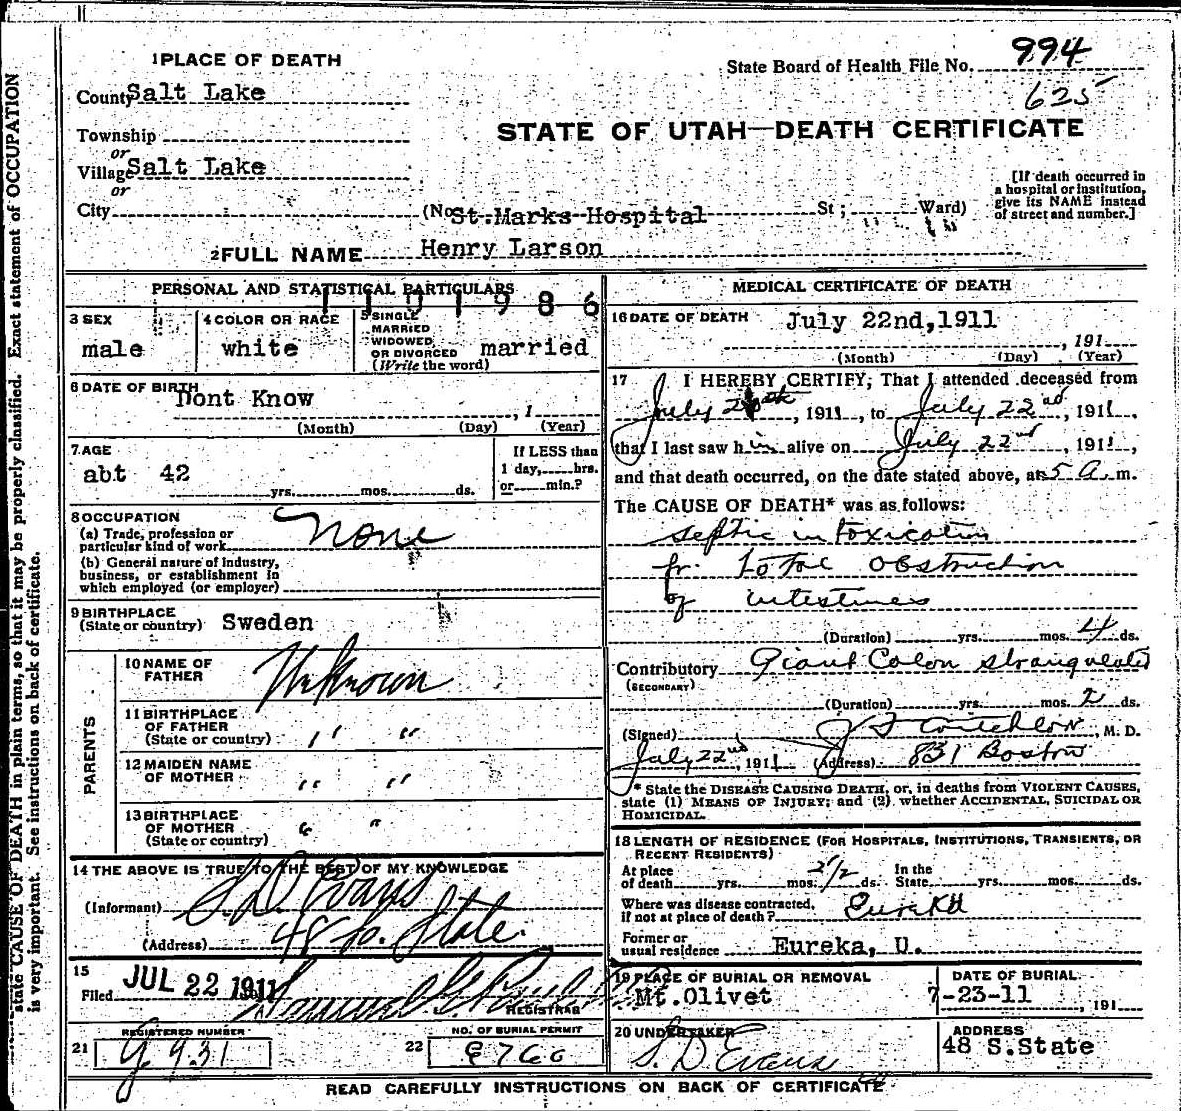 1 PLACE OF DEATH
County Salt Lake
Township
or
Village Salt Lake
or
City (No St.Marks Hospital St; Ward)
[If death occurred in a hospital or institution, give its NAME instead of street and number.]
State Board of Health File No. 994
625
STATE OF UTAH—DEATH CERTIFICATE
2 FULL NAME Henry Larson
PERSONAL AND STATISTICAL PARTICULARS
3 SEX
male
4 COLOR OR RACE
white
5 SINGLE
MARRIED
WIDOWED
OR DIVORCED
(Write the word)
married
6 DATE OF BIRTH
Dont Know , 1
(Month) (Day) (Year)
7 AGE
abt 42
yrs. mos. ds.
If LESS than
1 day, hrs.
or min.?
8 OCCUPATION
(a) Trade, profession or
particular kind of work
None
(b) General nature of industry,
business, or establishment in
which employed (or employer)
9 BIRTHPLACE
(State or country) Sweden
PARENTS
10 NAME OF
FATHER
Unknown
11 BIRTHPLACE
OF FATHER
(State or country) " "
12 MAIDEN NAME
OF MOTHER " "
13 BIRTHPLACE
OF MOTHER " "
(State or country)
14 THE ABOVE IS TRUE TO THE BEST OF MY KNOWLEDGE
(Informant) S. D. Evans
(Address) 48 So. State.
15
Filed JUL 22 1911
REGISTRAR
REGISTERED NUMBER
21
NO. OF BURIAL PERMIT
22
MEDICAL CERTIFICATE OF DEATH
16 DATE OF DEATH July 22nd,1911
, 191
(Month) (Day) (Year)
17 I HEREBY CERTIFY, That I attended deceased from
July 20th, 1911, to July 22nd, 1911,
that I last saw him alive on July 22nd, 1911,
and that death occurred, on the date stated above, at 5 A. m.
The CAUSE OF DEATH* was as follows:
septic intoxication
fr. total obstruction
of intestines
(Duration) yrs. mos. 4 ds.
Contributory Giant Colon strangulated
(SECONDARY)
(Duration) yrs. mos. 2 ds.
(Signed) , M. D.
July 22nd, 1911 (Address) 831 Boston
* State the DISEASE CAUSING DEATH, or, in deaths from VIOLENT CAUSES,
state (1) MEANS OF INJURY; and (2) whether ACCIDENTAL, SUICIDAL OR
HOMICIDAL.
18 LENGTH OF RESIDENCE (FOR HOSPITALS, INSTITUTIONS, TRANSIENTS, OR
RECENT RESIDENTS)
At place
of death yrs. mos. 2 1/2 ds.
In the
State yrs. mos. ds.
Where was disease contracted,
if not at place of death? Eureka
Former or
usual residence Eureka, U.
19 PLACE OF BURIAL OR REMOVAL
Mt.Olivet
DATE OF BURIAL
7-23-11 , 191
20 UNDERTAKER
S. D. Evans
ADDRESS
48 S.State
READ CAREFULLY INSTRUCTIONS ON BACK OF CERTIFICATE
state CAUSE OF DEATH in plain terms, so that it may be properly classified. Exact statement of OCCUPATION
is very important. See instructions on back of certificate.